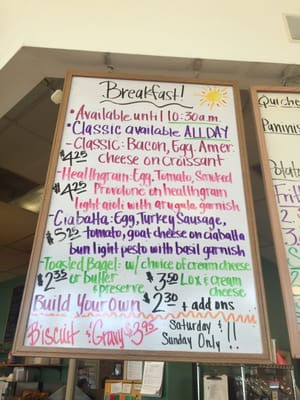 Breakfast!
• Available until 10:30a.m.
• Classic available ALL DAY
- Classic: Bacon, Egg, Amer.
$4.25 cheese on Croissant
- Healthgrain: Egg, Tomato, Smoked
$4.25 Provolone on healthgrain
light aioli with arugula garnish
- Ciabatta: Egg, Turkey Sausage,
$5.25 tomato, goat cheese on ciabatta
bun light pesto with basil garnish
- Toasted Bagel: w/ choice of cream cheese
$2.35 or butter & preserve $3.50 Lox & Cream cheese
Build Your Own $2.30 + add ons
Biscuit & Gravy $3.95 Saturday & Sunday Only !!
Quich
Panini
Potato